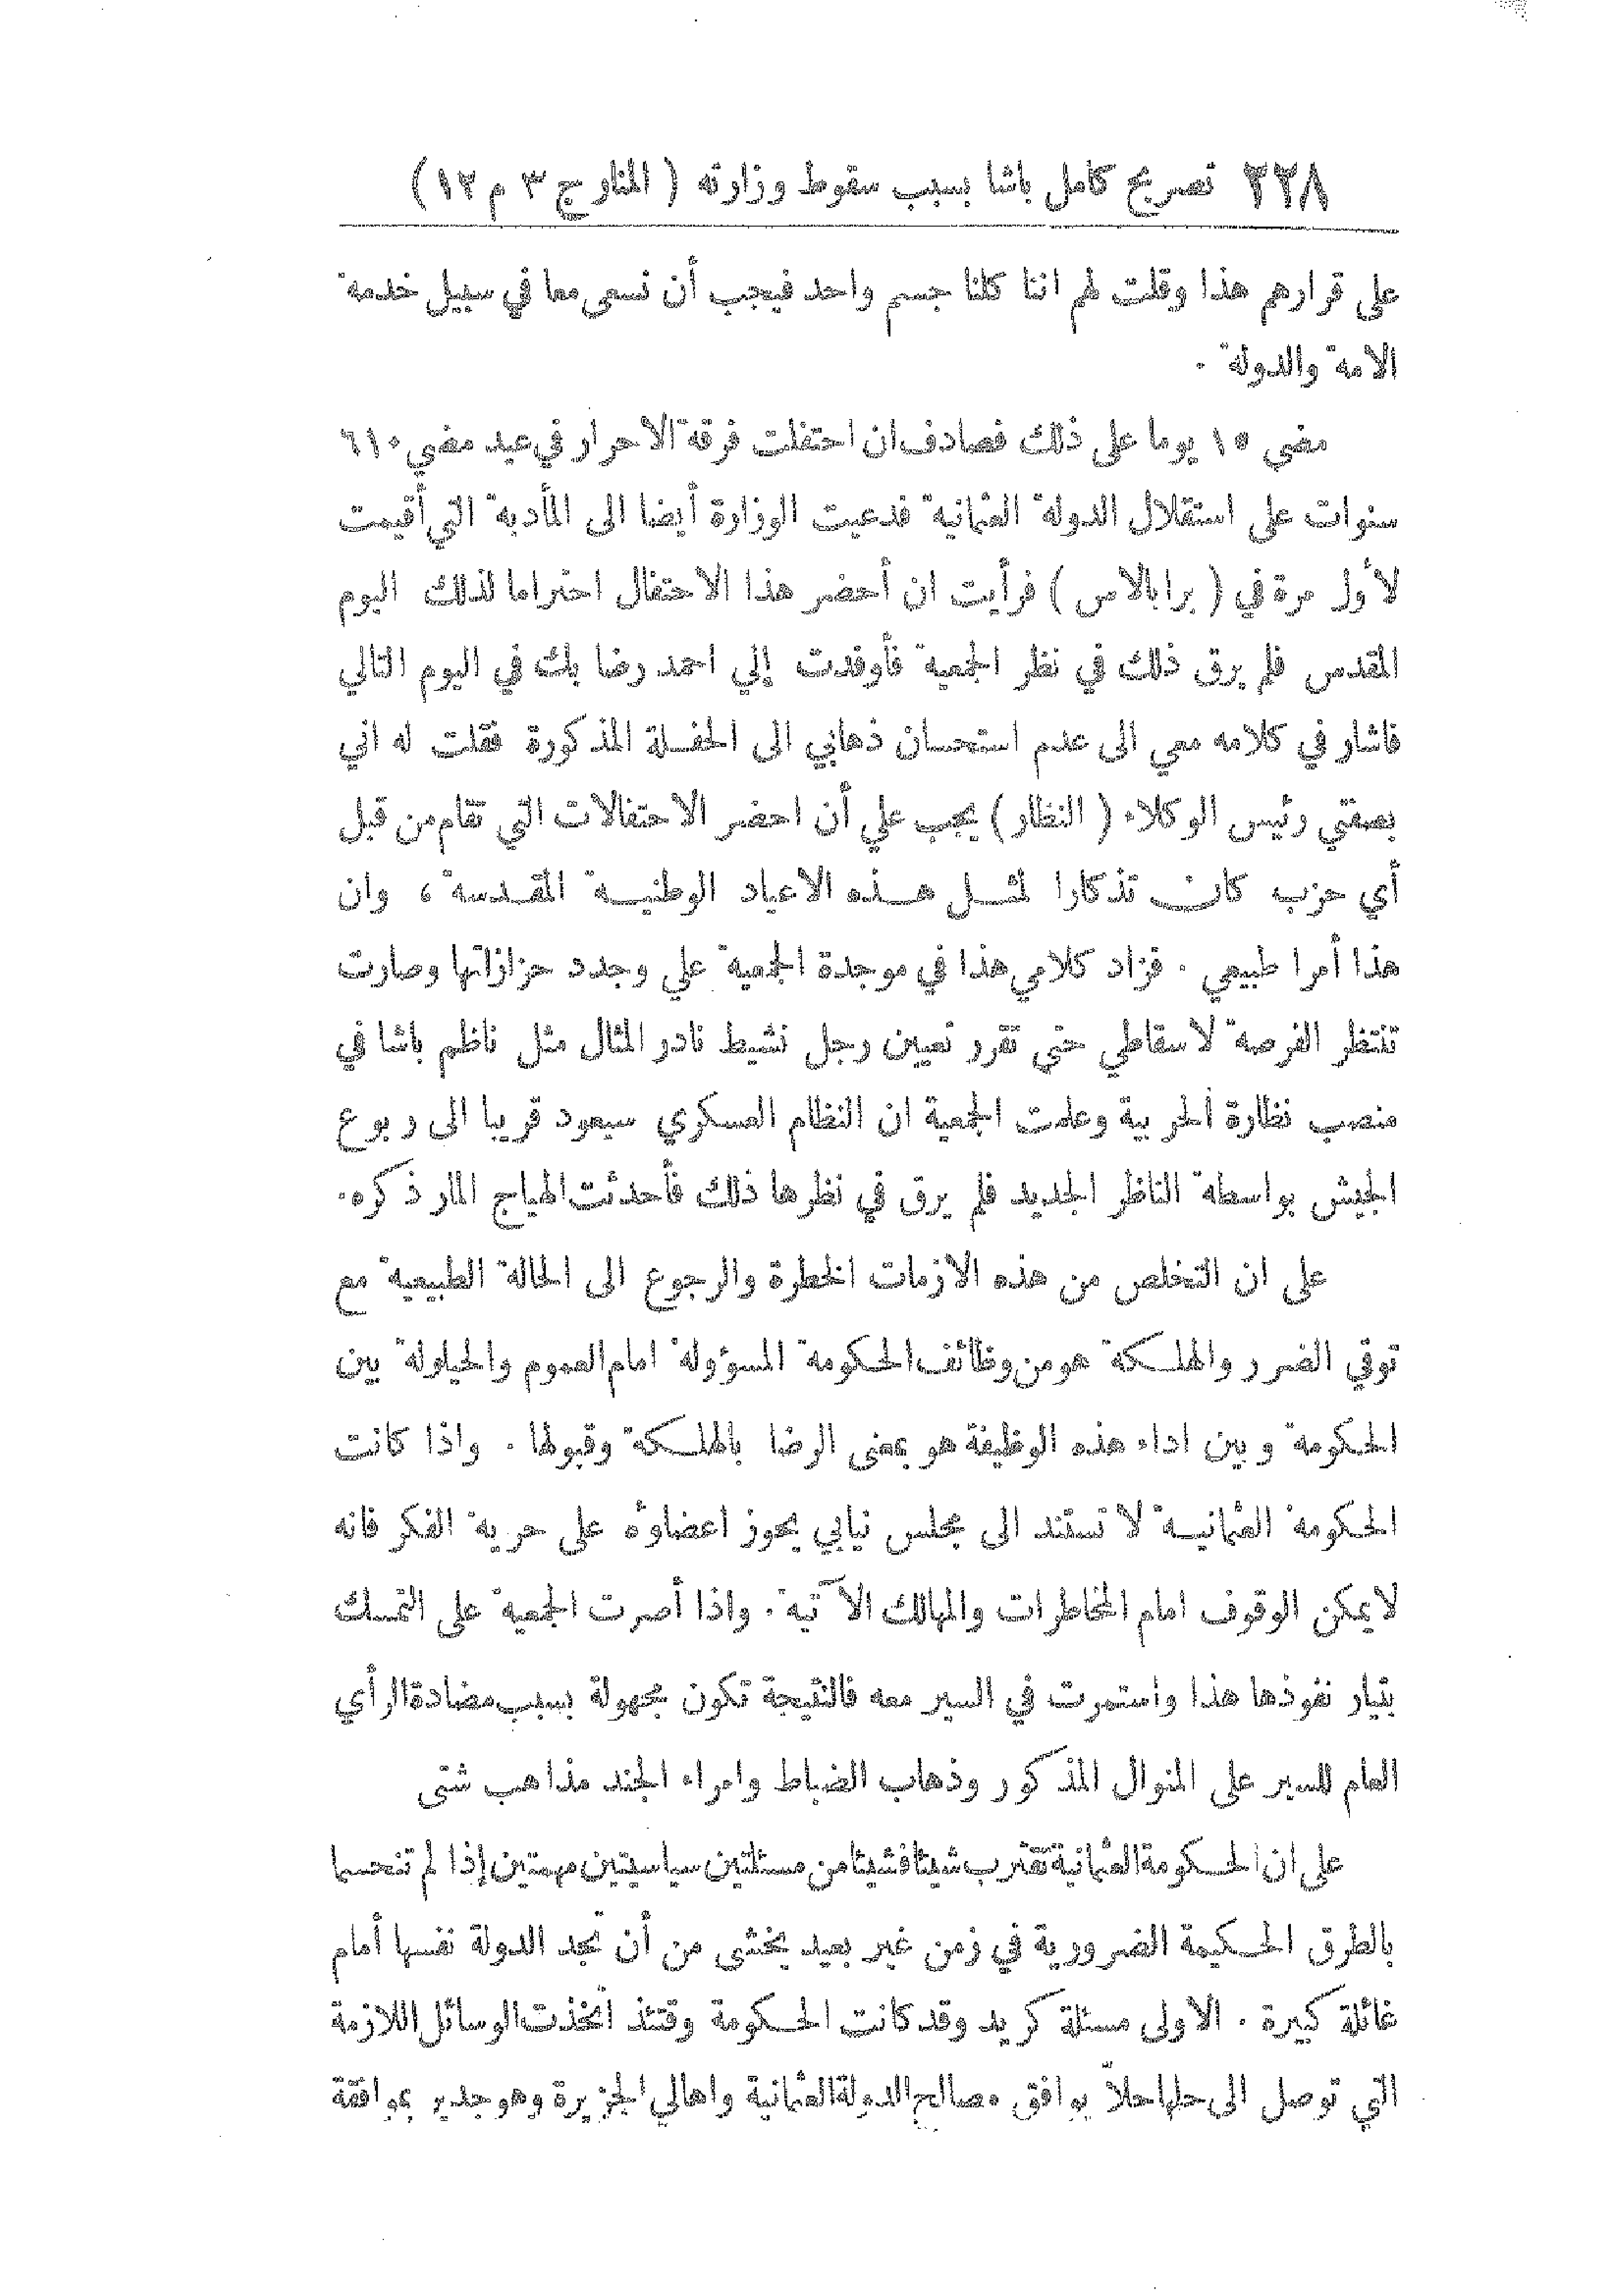 ٢٢٨ تصريح كامل باشا بسبب سقوط وزارته ( المنار ج ٣ م ١٢ )
على قرارهم هذا وقلت لهم اننا كلنا جسم واحد فيجب أن نسعى معا في سبيل خدمة
الامة والدولة .
مضى ١٥ يوما على ذلك فصادف ان احتفلت فرقة الاحرار في عيد مضي ٦١٠
سنوات على استقلال الدولة العثمانية فدعيت الوزارة أيضا الى المأدبة التي أقيمت
لأول مرة في ( برابالاس ) فرأيت ان أحضر هذا الاحتفال احتراما لذلك اليوم
المقدس فلم يرق ذلك في نظر الجمعية فأوفدت إلي احمد رضا بك في اليوم التالي
فاشار في كلامه معي الى عدم استحسان ذهابي الى الحفلة المذكورة فقلت له اني
بصفتي رئيس الوكلاء ( النظار ) يجب علي أن احضر الاحتفالات التي تقام من قبل
أي حزب كان تذكارا لمثل هذه الاعياد الوطنية المقدسة ، وان
هذا أمرا طبيعي . فزاد كلامي هذا في موجدة الجمعية علي وجدد حزازاتها وصارت
تنتظر الفرصة لاسقاطي حتى تقرر تعيين رجل نشيط نادر المثال مثل ناظم باشا في
منصب نظارة الحربية وعلمت الجمعية ان النظام العسكري سيعود قريبا الى ربوع
الجيش بواسطة الناظر الجديد فلم يرق في نظرها ذلك فأحدثت الهياج المار ذكره .
على ان التخلص من هذه الازمات الخطرة والرجوع الى الحالة الطبيعية مع
توقي الضرر والهلكة هو من وظائف الحكومة المسؤولة امام العموم والحيلولة بين
الحكومة وبين اداء هذه الوظيفة هو بمعنى الرضا بالهلكة وقبولها . واذا كانت
الحكومة العثمانية لا تستند الى مجلس نيابي يحوز اعضاؤه على حرية الفكر فانه
لا يمكن الوقوف امام المخاطرات والمهالك الآتية . واذا أصرت الجمعية على التمسك
بتيار نفوذها هذا واستمرت في السير معه فالنتيجة تكون مجهولة بسبب مضادة الرأي
العام للسير على المنوال المذكور وذهاب الضباط وامراء الجند مذاهب شتى
على ان الحكومة العثمانية تقترب شيئا فشيئا من مسئلتين سياسيتين مهمتين إذا لم تنحسما
بالطرق الحكيمة الضرورية في زمن غير بعيد يخشى من أن تجد الدولة نفسها أمام
غائلة كبيرة . الاولى مسئلة كريد وقد كانت الحكومة وقتئذ اتخذت الوسائل اللازمة
التي توصل الى حلها حلاّ يوافق مصالح الدولة العثمانية واهالي الجزيرة وهو جدير بموافقة